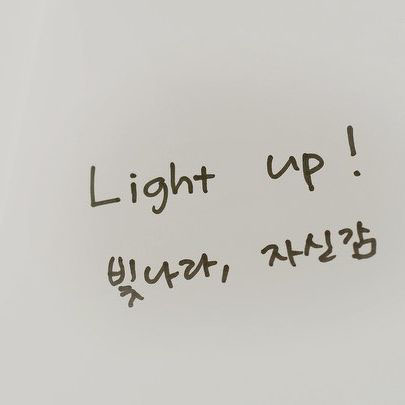 Light up!
빛나라, 자신감